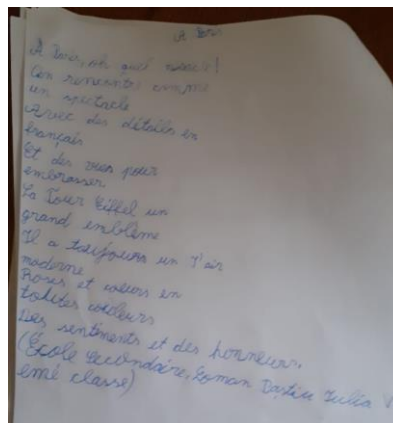 A Paris
À Paris, oh quel miracle!
On rencontre comme
un spectacle
Avec des détails en
français
Et des vues pour
embrasser
La Tour Eiffel un
grand emblème
Il a toujours un l'air
moderne
Roses et cœurs en
toutes couleurs
Des sentiments et des honneurs.
(École Secondaire, Roman Dastiu Iulia V
emé classe)